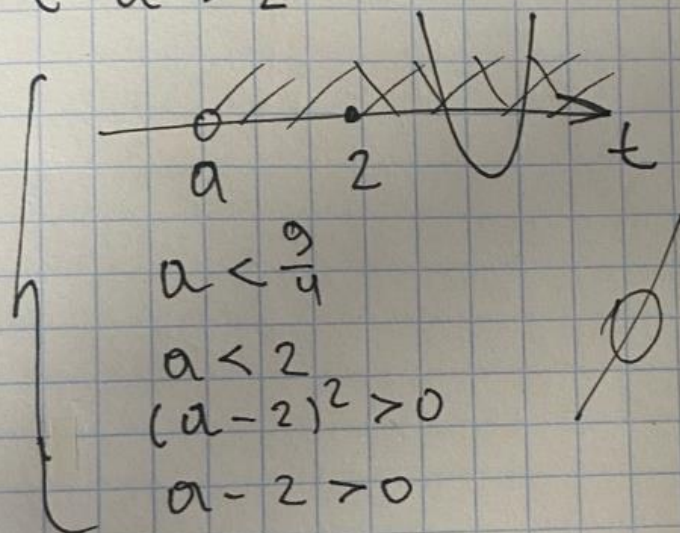 a 2 t
a < 9/4
a < 2
(a - 2)² > 0
a - 2 > 0
Ø